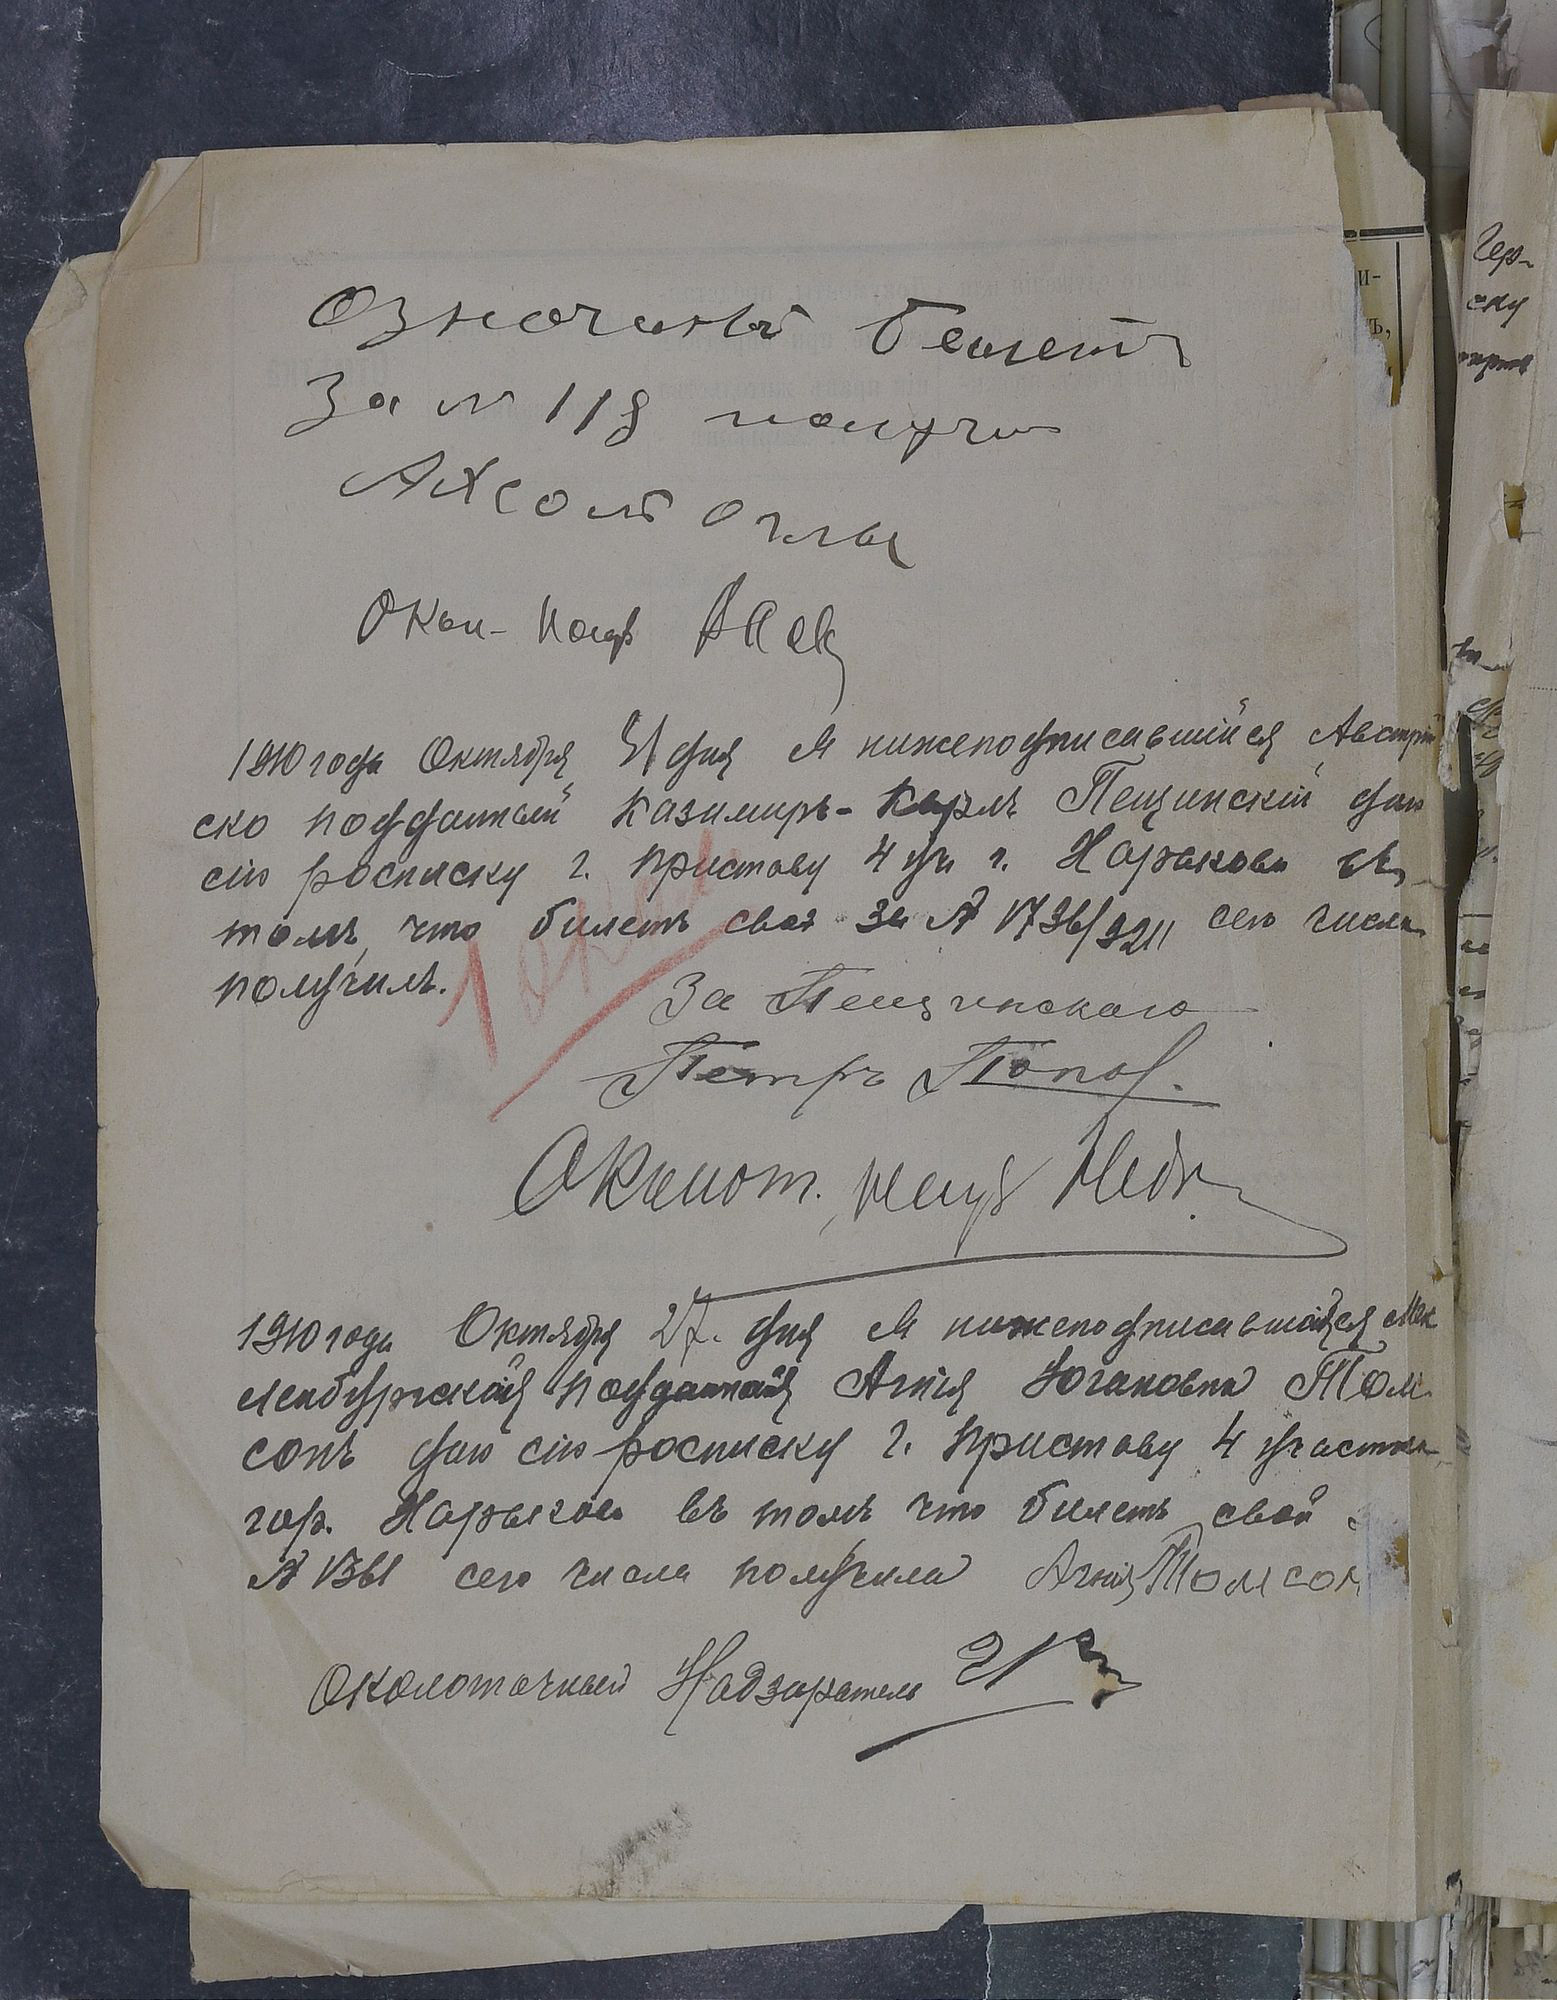 Означеный белетъ
За № 118 получил
Ахсом Оглы
Окол- Надз
1910 года Октября 21 дня Я нижеподписавшійся Австрій
ско подданный Казимиръ-Карлъ Пещинскій даю
сію росписку г. Приставу 4 уч. г. Харькова въ
томъ, что билетъ свой за № 1736/9211 сего числа
получилъ.
За Пещинскаго
Петръ Попов.
Околот. Надз
1910 года Октября 27. дня Я нижеподписавшаяся Мек
ленбургская подданная Агнія Югановна Том
сонъ даю сію росписку г. Приставу 4 участка
гор. Харькова въ томъ что билетъ свой
№ 1361 сего числа получила Агнія Томсон
Околоточный Надзиратель
Гер-
ску